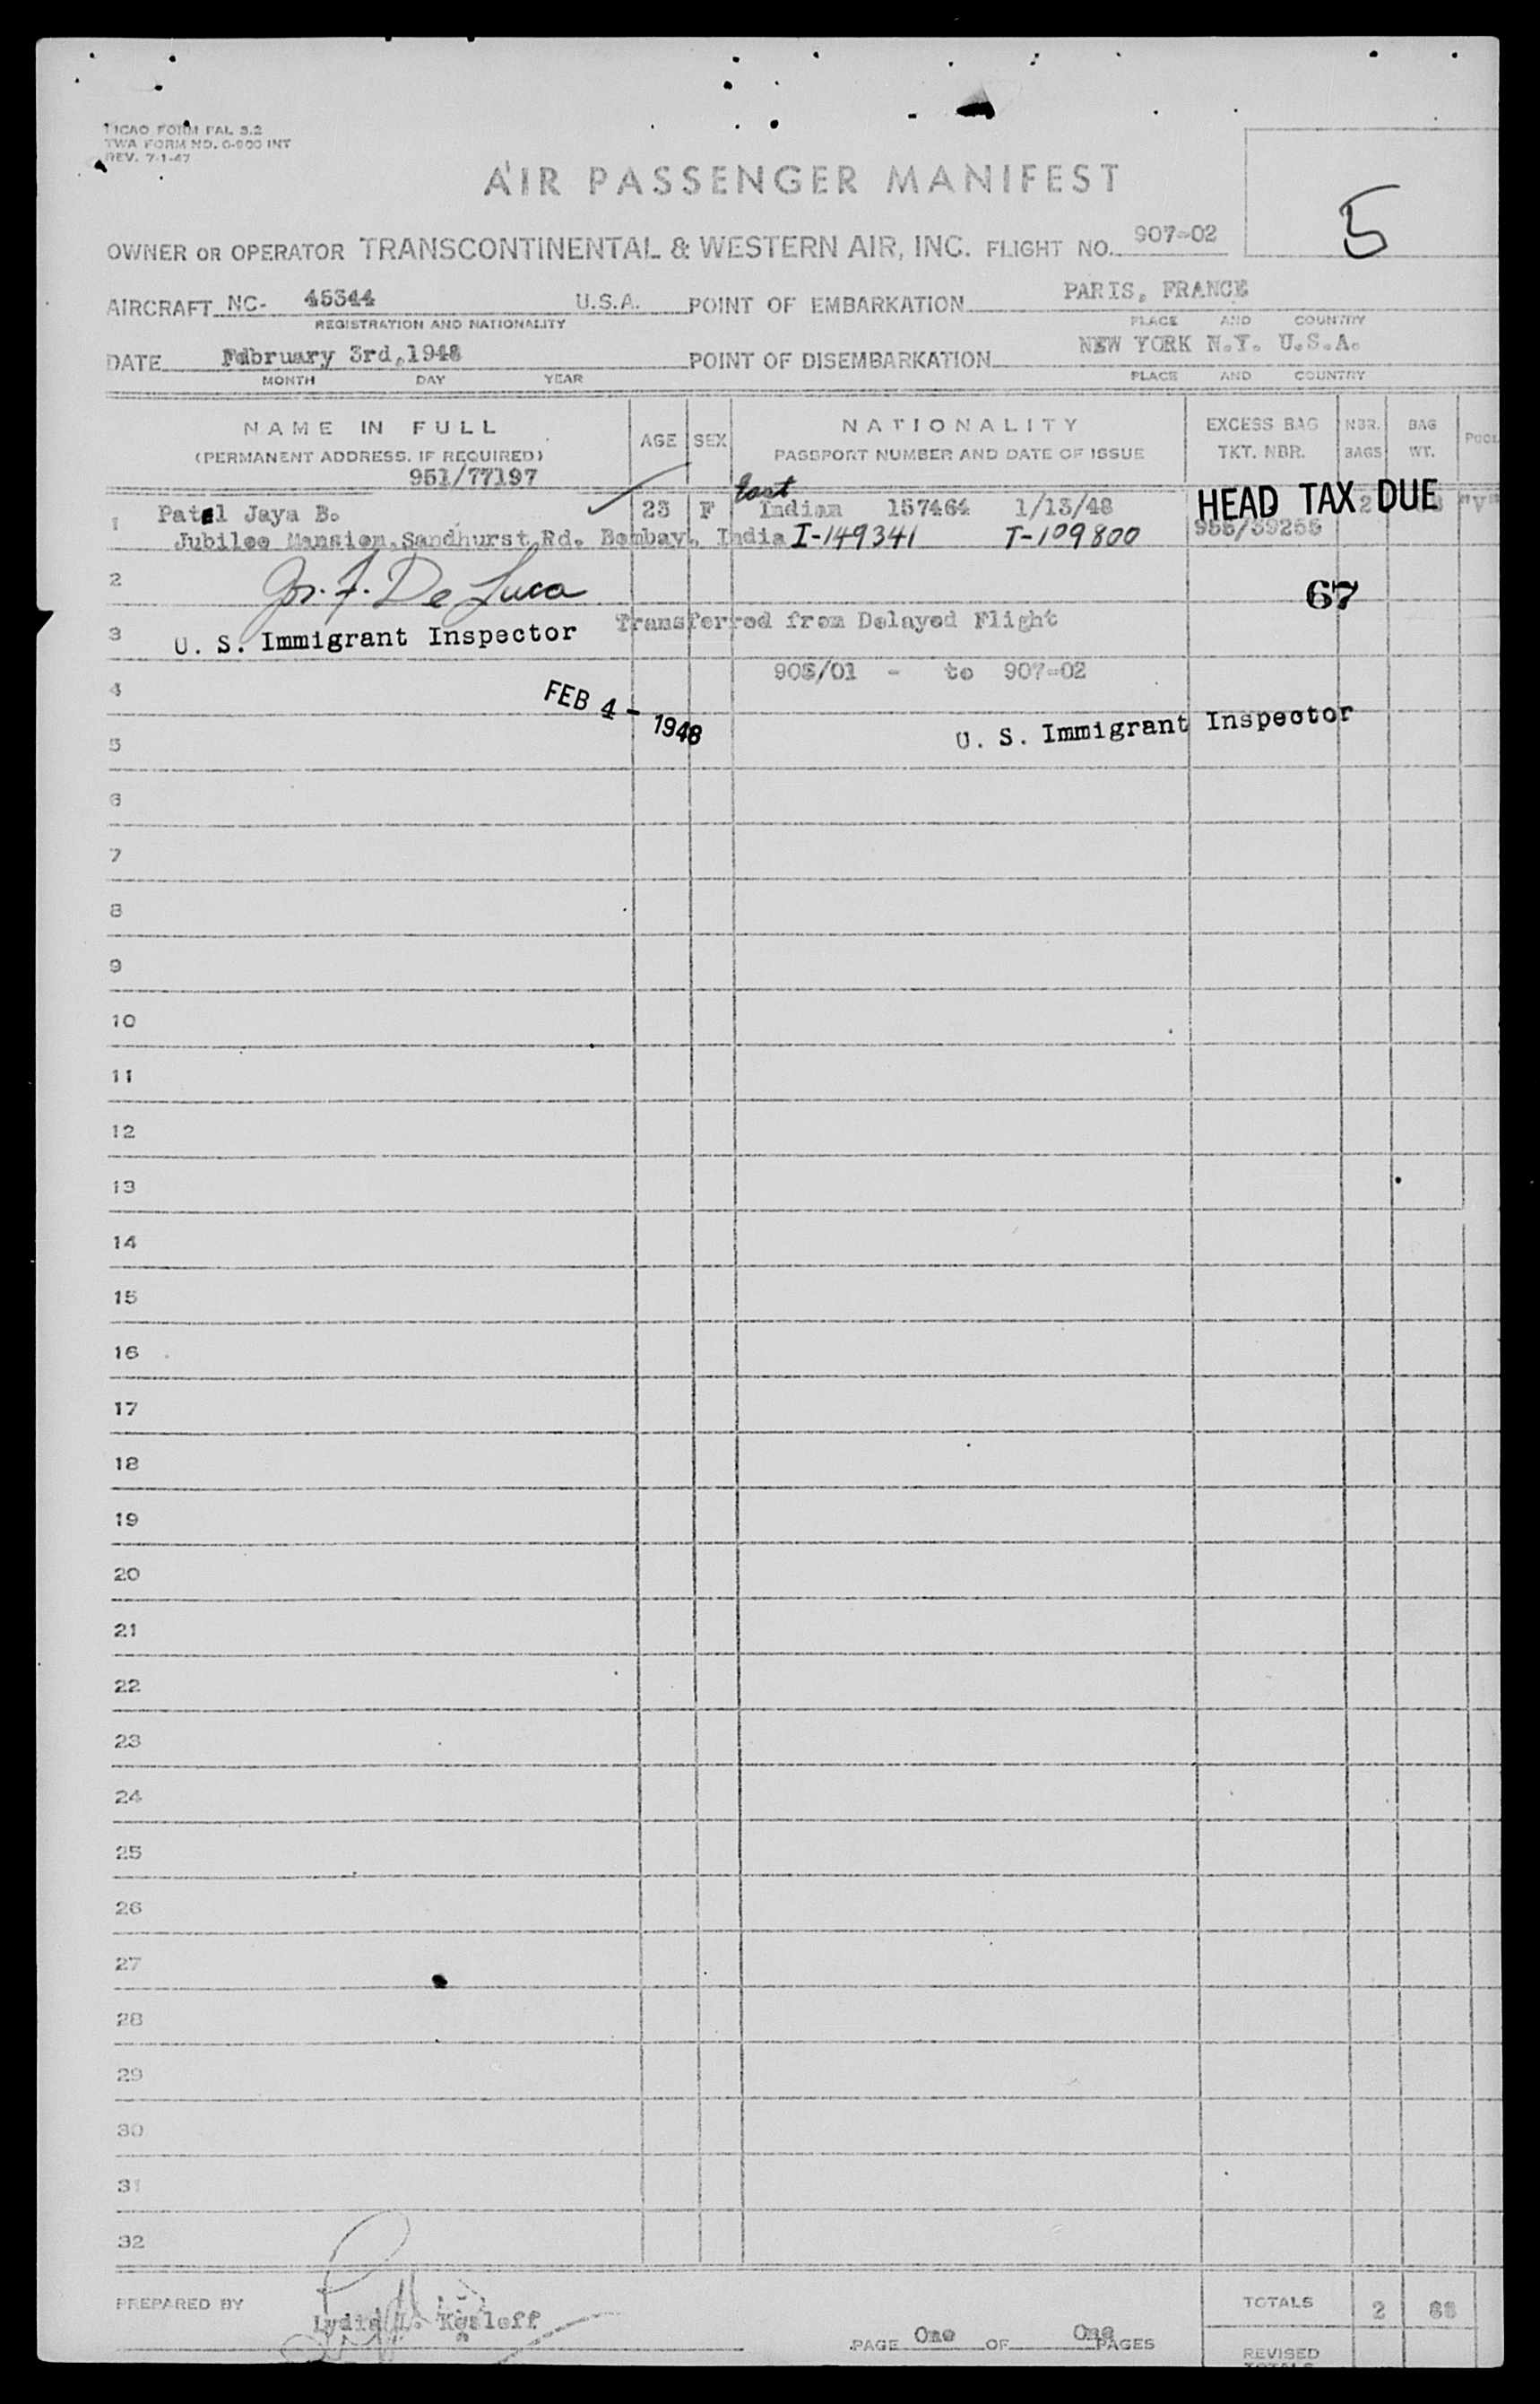 ICAO FORM FAL 3.2
TWA FORM NO. O-900 INT
REV. 7-1-47
AIR PASSENGER MANIFEST
5
OWNER OR OPERATOR TRANSCONTINENTAL & WESTERN AIR, INC. FLIGHT NO. 907-02
AIRCRAFT NC- 45344 U.S.A. POINT OF EMBARKATION PARIS, FRANCE
REGISTRATION AND NATIONALITY PLACE AND COUNTRY
DATE February 3rd,1948 POINT OF DISEMBARKATION NEW YORK N.Y. U.S.A.
MONTH DAY YEAR PLACE AND COUNTRY
NAME IN FULL AGE SEX NATIONALITY EXCESS BAG NBR. BAG
(PERMANENT ADDRESS, IF REQUIRED) PASSPORT NUMBER AND DATE OF ISSUE TKT. NBR. BAGS WT.
951/77197
East
1 Patel Jaya B. 23 F Indian 157464 1/13/48 HEAD TAX DUE 2 "V"
Jubilee Mansion.Sandhurst Rd. Bombay, India I-149341 T-109800
2 Jos. F. De Luca 67
3 U. S. Immigrant Inspector Transferred from Delayed Flight
4 905/01 - to 907-02
FEB 4 - 1948
5 U. S. Immigrant Inspector
6
7
8
9
10
11
12
13
14
15
16
17
18
19
20
21
22
23
24
25
26
27
28
29
30
31
32
PREPARED BY Lydia L. Kosloff PAGE One OF One PAGES TOTALS 2 88
REVISED
TOTALS